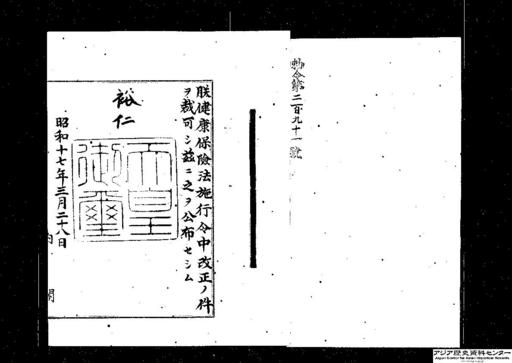 勅令第二百九十一號
朕健康保險法施行令中改正ノ件
ヲ裁可シ茲ニ之ヲ公布セシム
裕仁
天皇御璽
昭和十七年三月二十八日
内閣
アジア歴史資料センター
Japan Center for Asian Historical Records